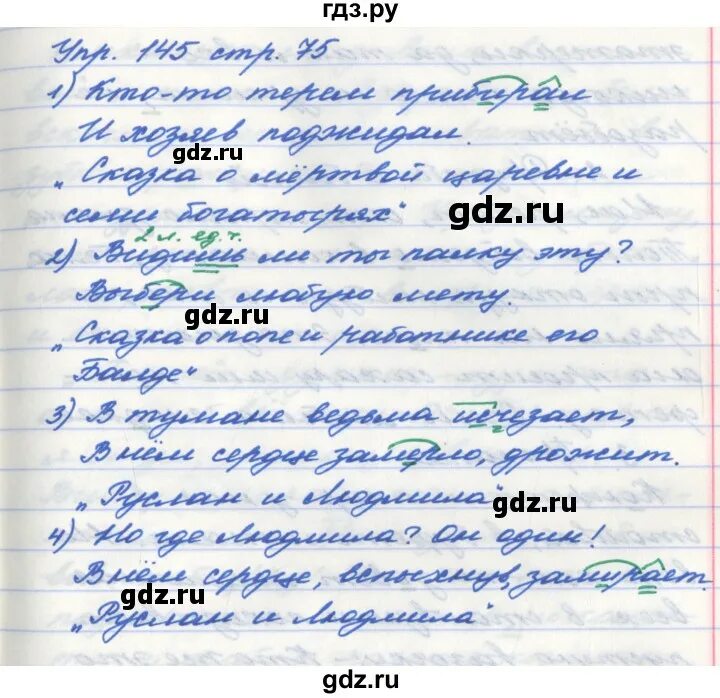 гдз.ру
Упр. 145 стр. 75
1) Кто-то терем прибирал
И хозяев поджидал.
gdz.ru
„Сказка о мёртвой царевне и
семи богатырях“
gdz.ru
2 л. ед. ч.
2) Видишь ли ты палку эту?
Выбери любую мету.
gdz.ru
„Сказка о попе и работнике его
Балде“
gdz.ru
3) В тумане ведьма исчезает,
В нём сердце замерло, дрожит.
gdz.ru
„Руслан и Людмила“
gdz.ru
4) Но где Людмила? Он один!
В нём сердце, вспыхнув, замирает.
gdz.ru
„Руслан и Людмила“
gdz.ru